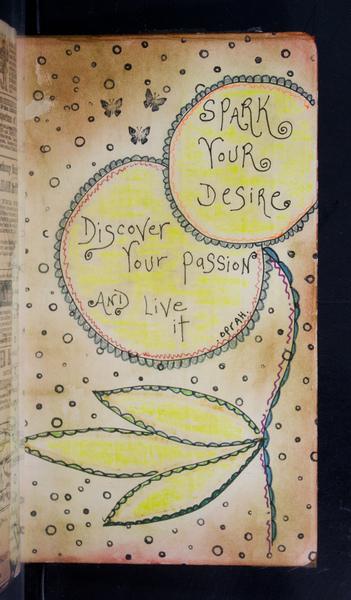 SPARK
YOUR
DESIRE
DISCOVER
YOUR PASSION
AND LIVE
it
OPRAH.